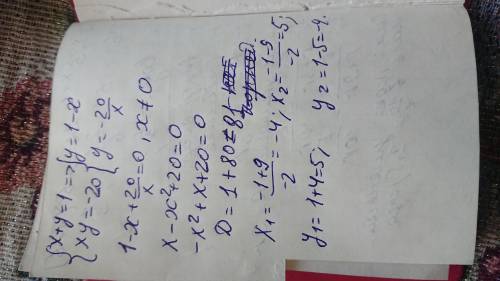 {x+y=1 => {y=1-x
{xy=-20 {y=-20/x
1-x+20/x=0, x≠0
x-x²+20=0
-x²+x+20=0
D=1+80=81
x₁=(-1+9)/-2=-4; x₂=(-1-9)/-2=5;
y₁=1+4=5; y₂=1-5=-4.